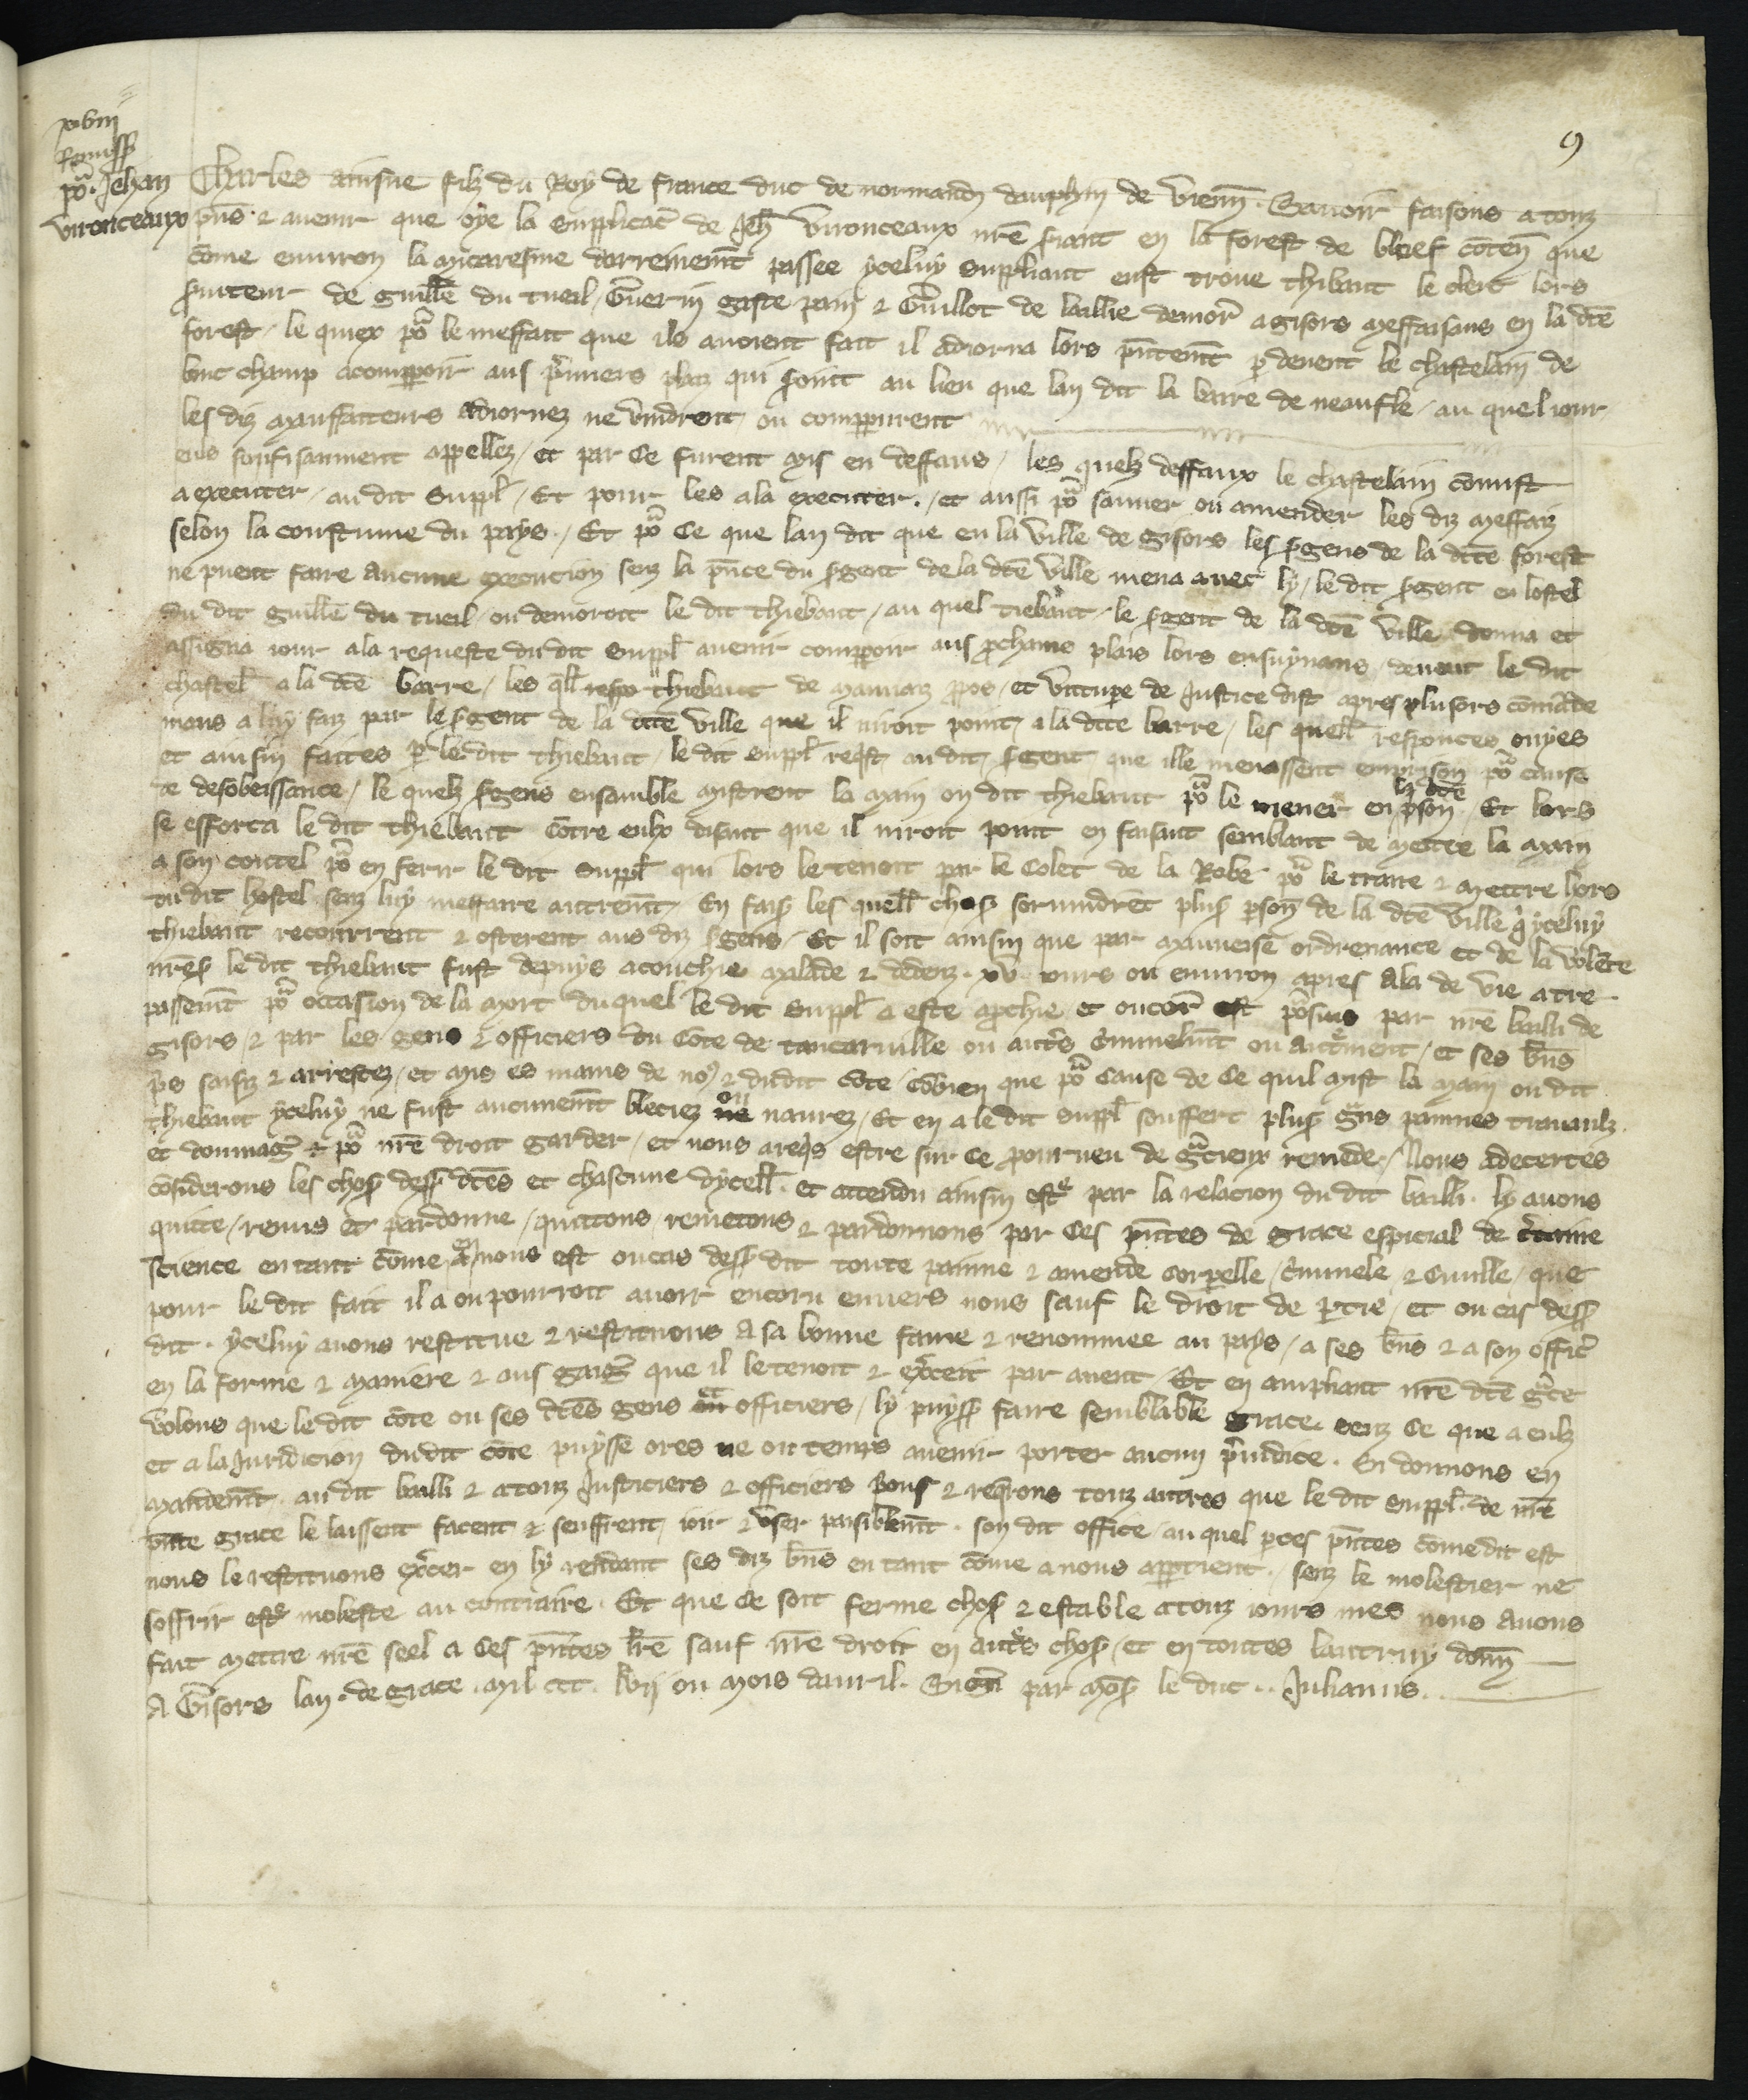 9
xviii
Remiss
po Jehan
vironceaux
Charles ainsne filz du Roy de france duc de normandie dauphin de vienn. Savoir faisons a touz
pns & avenir que oye la supplicac de Jeh vironceaux nre sgant en la forest de bleef conten que
come environ la micaresme darreinemt passee yceluy suppliant eust trouve thibaut le clerc lors
sviteur de guille du tueil, Guerin gaste pain & Guillot de baillie demor a gisors meffaisans en la dte
forest, le quiex po le meffait que ils avoient fait il adiorna lors pntemt p devent le chastelain de
buc champ a comparoir aus pmiers plaiz qui soint au lieu que lan dit la barre de neaufle, au quel iour
les diz maufaitteurs adiornez ne vindrent ou compurent
eus soufisanment appellez, et par ce furent mis en deffaus, les quelz deffaux le chastelain comist
a executer, au dit suppl, Et pour les ala executer, et aussi po sauver ou amender les diz meffaiz
selon la coustume du pays, Et po ce que lan dit que en la ville de gisors les sgens de la dicte forest
ne puent faire aucune execucion senz la pnce du sgent de la dte ville mena avec ly, le dit sgent en lostel
du dit guille du tueil, ou demoroit le dit thiebaut, au quel tiebaut, le sgent de la dte ville donna et
assigna iour a la requeste du dit suppl avenir comparoir aus pchains plais lors ensuyvans, devent le dit
chastel a la dte barre, les qll respo thiebaut de mauvaiz ppos, et vitupe de justice dist apres plusors comade
mens a luy faiz par le sgent de la dicte ville que il niroit point, a la dite barre, les quell responces ouyes
et ainsin faites p le dit thiebaut, le dit suppl reqst au dit, sgent, que ille menassent emprison po cause
de desobeissance, le quelz sgens ensamble mistrent la main ou dit thiebaut po le mener en la dte pson, Et lors
se efforca le dit thiebaut contre eulx disant que il niroit point en faisant semblant de mettre la main
a son coutel po en ferir le dit suppl qui lors le tenoit par le colet de la Robe po le traire & mettre hors
du dit hostel senz luy meffaire autremt, En fais les quell chos sorvindret plus pson de la dte ville q yceluy
thiebaut recourrent & osterent aus diz sgens, Et il soit ainsin que par mauveise ordrenance et de la volete
nres le dit thiebaut fust depuys acouchie malade & dedenz xv iours ou environ apres ala de vie a tre
passemt po occasion de la mort duquel le dit suppl a este apchie et oncor est posuis par nre bailli de
gisors, & par les gens & officiers du Cote de tancarville ou autrs cimnelmt ou autrement, et ses bns
ps saisiz & arrestez, et mis es mains de no9 & dudit cote, cobien que po cause de ce quil mist la main ou dit
thiebaut yceluy ne fust aucunemt bleciez ou navrez, Et en a le dit suppl souffert plus gns painnes travaulz
et dommag & po nre droit garder, et nous a reqs estre sur ce pourveu de gcieux remede, Nous adecertes
considerons les chos dess dtes et chascune dycell. et attendu ainsin este par la relacion du dit bailli. ly avons
quitte, remis et pardonne, quittons, remetons & pardonnons par ces pntes de grace especial de ctaine
science en tant come a nous est ou cas dess dit toute painne & amende corpelle, cimnele & civille, que
pour le dit fait il a ou pourroit avoir encoru envers nous sauf le droit de ptie, et ou cas dess
dit. yceluy avons restitue & restituons a sa bonne fame & renommee au pays, a ses bns & a son offic
en la forme & maniere & aus gaig que il le tenoit & exceit par avent, Et en ampliant nre dte gce
volons que le dit cote ou ses dtes gens et officiers, ly puyss faire semblable grace. senz ce que a eulz
et a la Juridicion dudit cote puysse ores ne ou temps avenir porter aucun pjudice. Si donnons en
mandemt. au dit bailli & a touz Justiciers & officiers Nous & reqrons touz autres que le dit suppl. de nre
pnte grace le laissent facent & seuffrent, ioir & user paisiblemt. son dit office, au quel p ces pntes come dit est
nous le restituons excer en ly rendant ses diz bns en tant come a nous appartient, senz le molestier ne
soffrir est moleste au contraire. Et que ce soit ferme chos & estable a touz iours mes nous avons
fait mettre nre seel a ces pntes lre sauf nre droit en autrs chos, et en toutes lautruy donn
A Gisors lan. de grace. mil ccc. lvij ou mois davril. Signe par mos le duc .. Julianus.